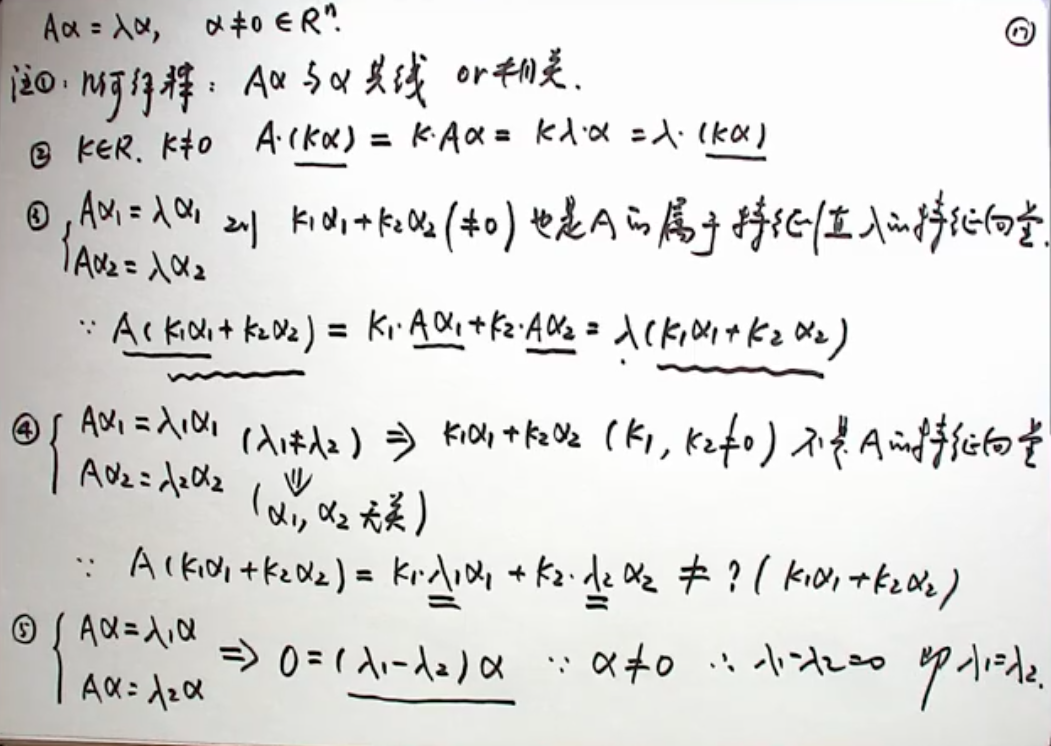 Aα = λα, α≠0 ∈ Rⁿ. ⑰
注①: 几何解释: Aα 与 α 共线 or 相关.
② K∈R, K≠0 A·(Kα) = K·Aα = Kλ·α = λ·(Kα)
③ { Aα₁ = λα₁ 则 K₁α₁+K₂α₂ (≠0) 也是A的属于特征值λ的特征向量.
Aα₂ = λα₂
∵ A(K₁α₁+K₂α₂) = K₁·Aα₁+K₂·Aα₂ = λ(K₁α₁+K₂α₂)
④ { Aα₁ = λ₁α₁ (λ₁≠λ₂) ⇒ K₁α₁+K₂α₂ (K₁, K₂≠0) 不是A的特征向量
Aα₂ = λ₂α₂ ⇓
(α₁, α₂ 无关)
∵ A(K₁α₁+K₂α₂) = K₁·λ₁α₁ + K₂·λ₂α₂ ≠ ?(K₁α₁+K₂α₂)
⑤ { Aα = λ₁α ⇒ 0 = (λ₁-λ₂)α ∵ α≠0 ∴ λ₁-λ₂=0 即 λ₁=λ₂.
Aα = λ₂α